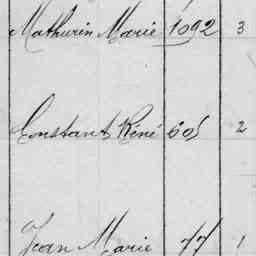 Mathurin Marie 1092 3
Constant Réné 605 2
Jean Marie 77 1